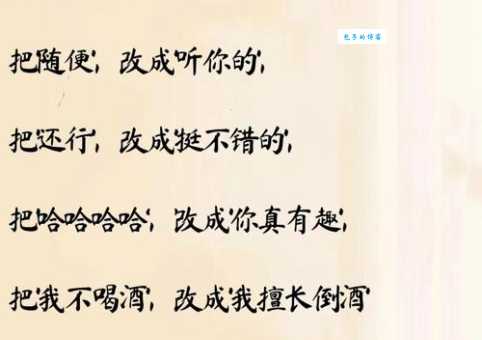 包子的博客
把'随便', 改成'听你的',
把'还行', 改成'挺不错的',
把'哈哈哈哈', 改成'你真有趣',
把'我不喝酒', 改成'我擅长倒酒'